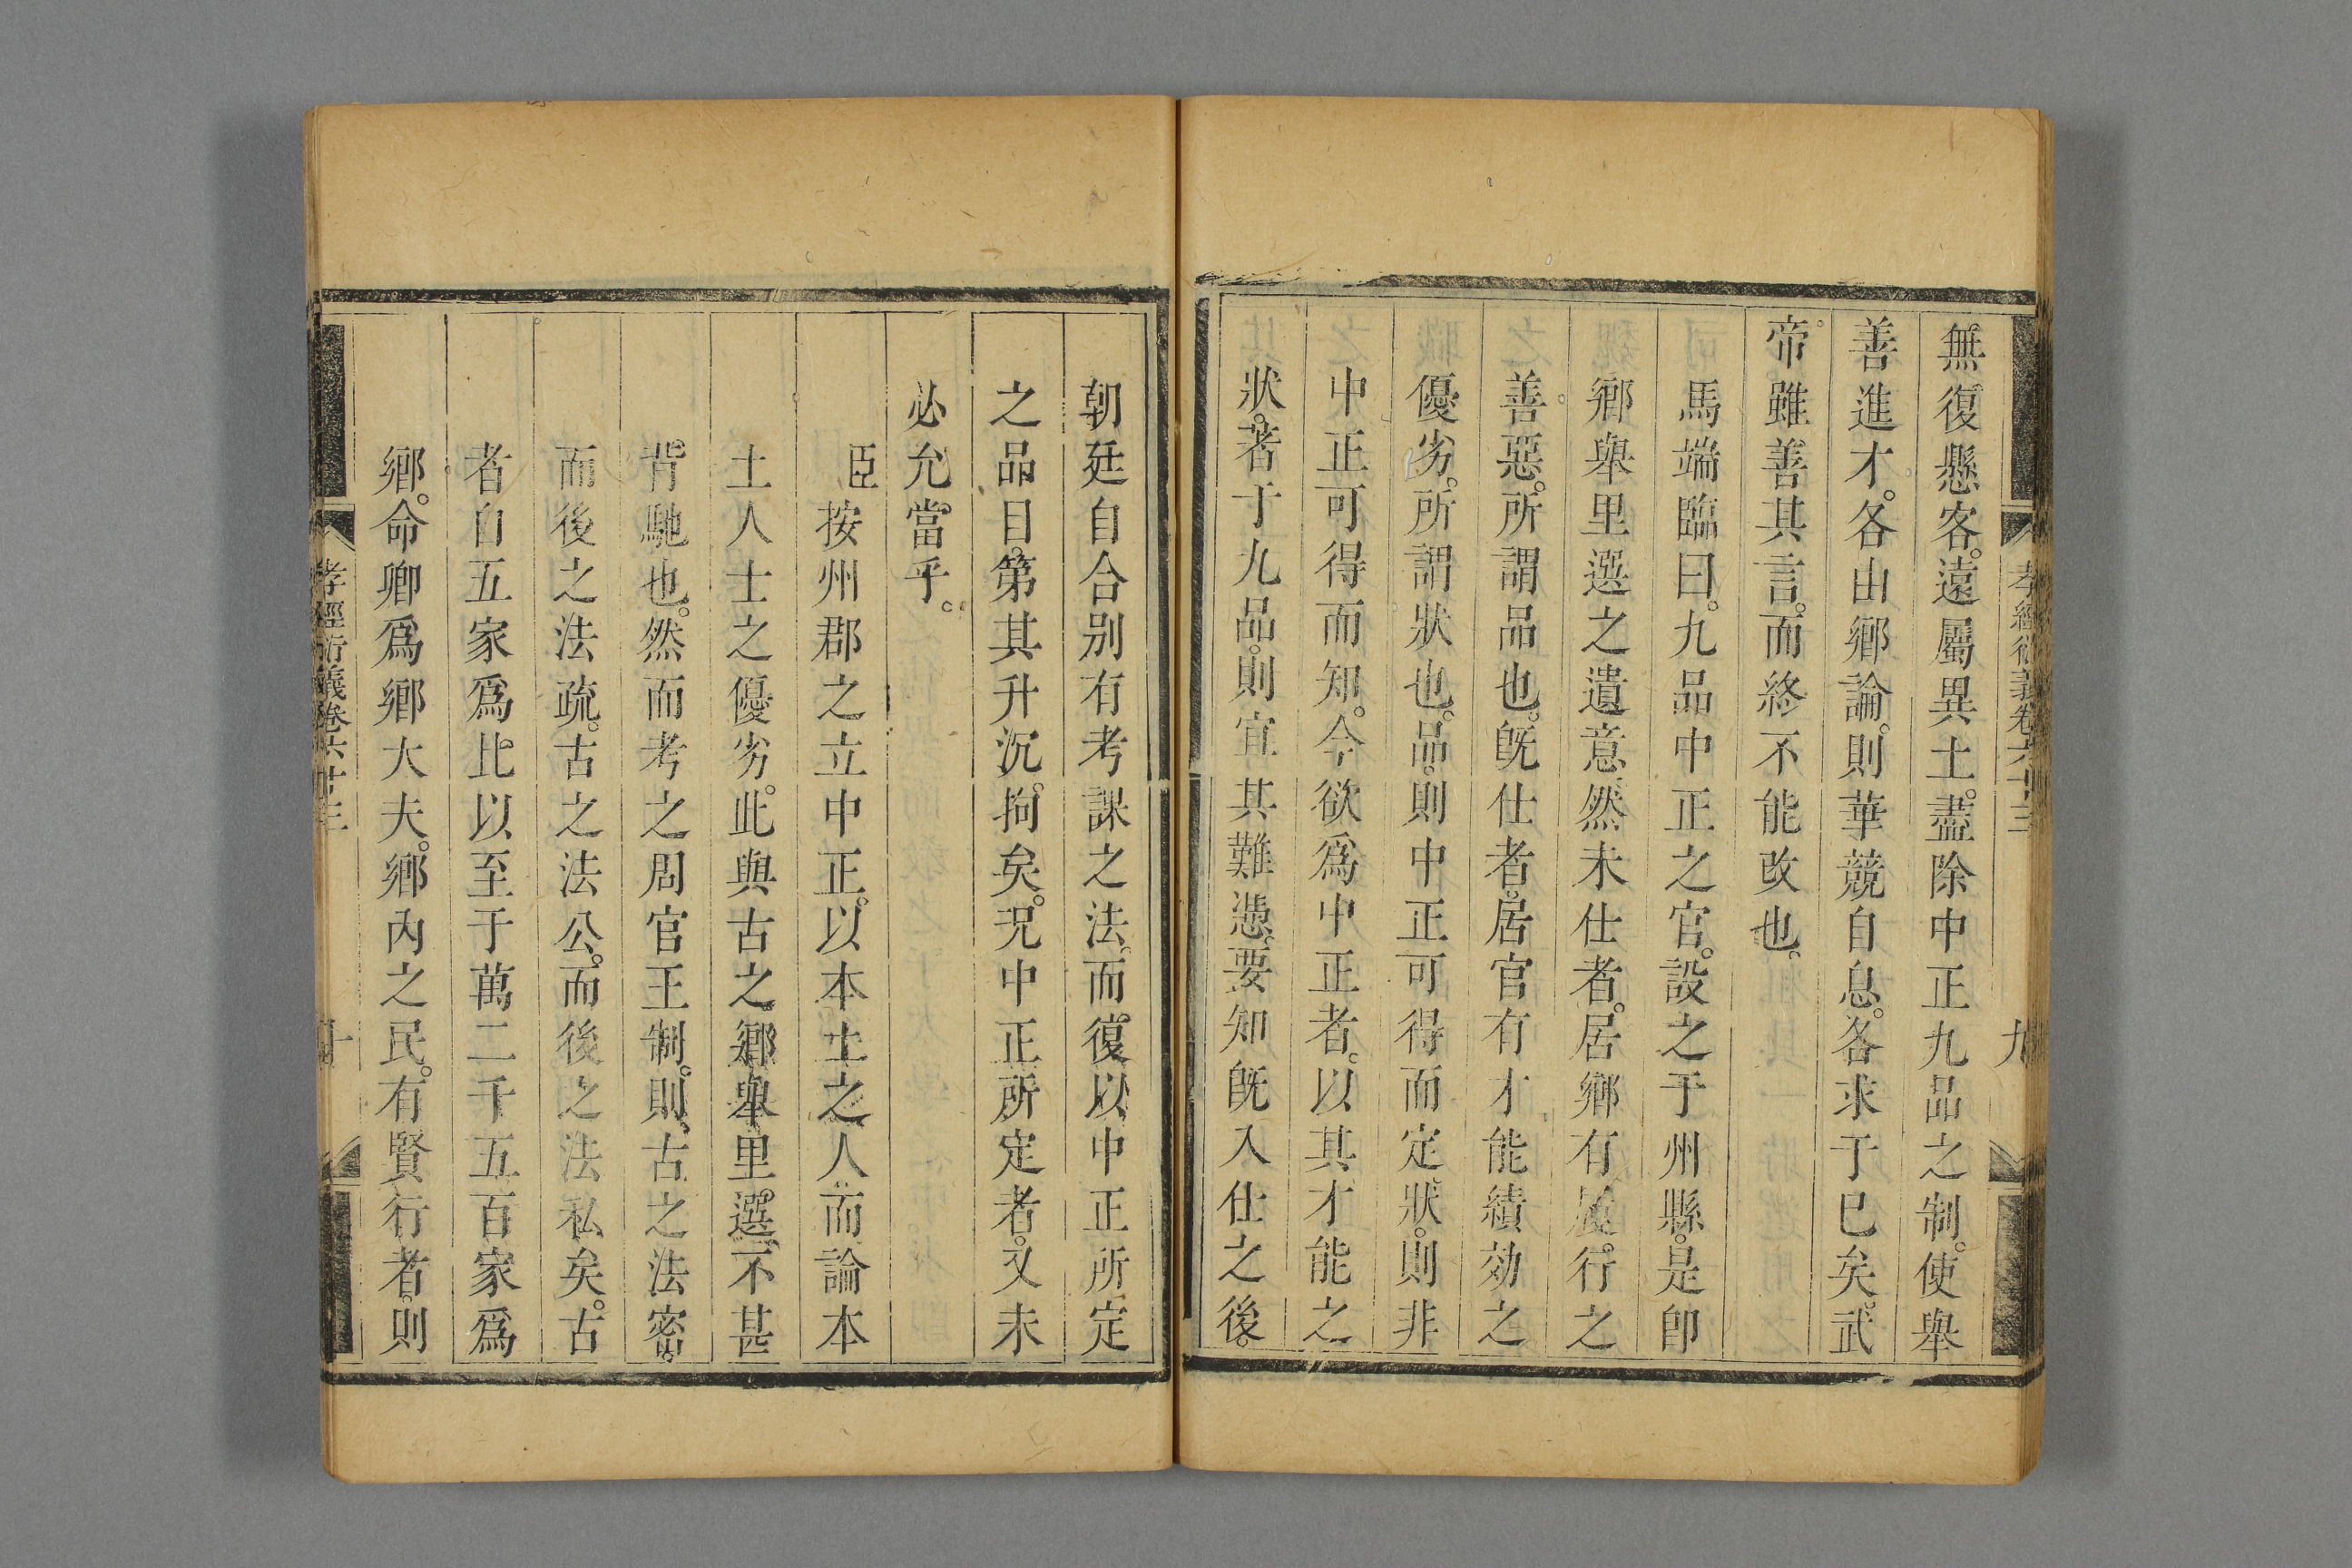 孝經衍義卷六十三
九
無復懸客。遠屬異土。盡除中正九品之制。使舉
善進才。各由鄉論。則華競自息。各求于已矣。武
帝雖善其言。而終不能改也。
馬端臨曰。九品中正之官。設之于州縣。是卽
鄉舉里選之遺意然未仕者。居鄉有履。行之
善惡。所謂品也。旣仕者。居官有才能績効之
優劣。所謂狀也。品。則中正可得而定狀。則非
中正可得而知。今欲爲中正者。以其才能之
狀。著于九品。則宜其難憑。要知旣入仕之後。
朝廷自合別有考課之法。而復以中正所定
之品目。第其升沉。拘矣。况中正所定者。又未
必允當乎。
臣按州郡之立中正。以本土之人而論本
土人士之優劣。此與古之鄉舉里選。不甚
背馳也。然而考之周官王制。則古之法密。
而後之法疏。古之法公。而後之法私矣。古
者自五家爲比以至于萬二千五百家爲
鄉。命卿爲鄉大夫。鄉內之民。有賢行者。則
孝經衍義卷六十三
十